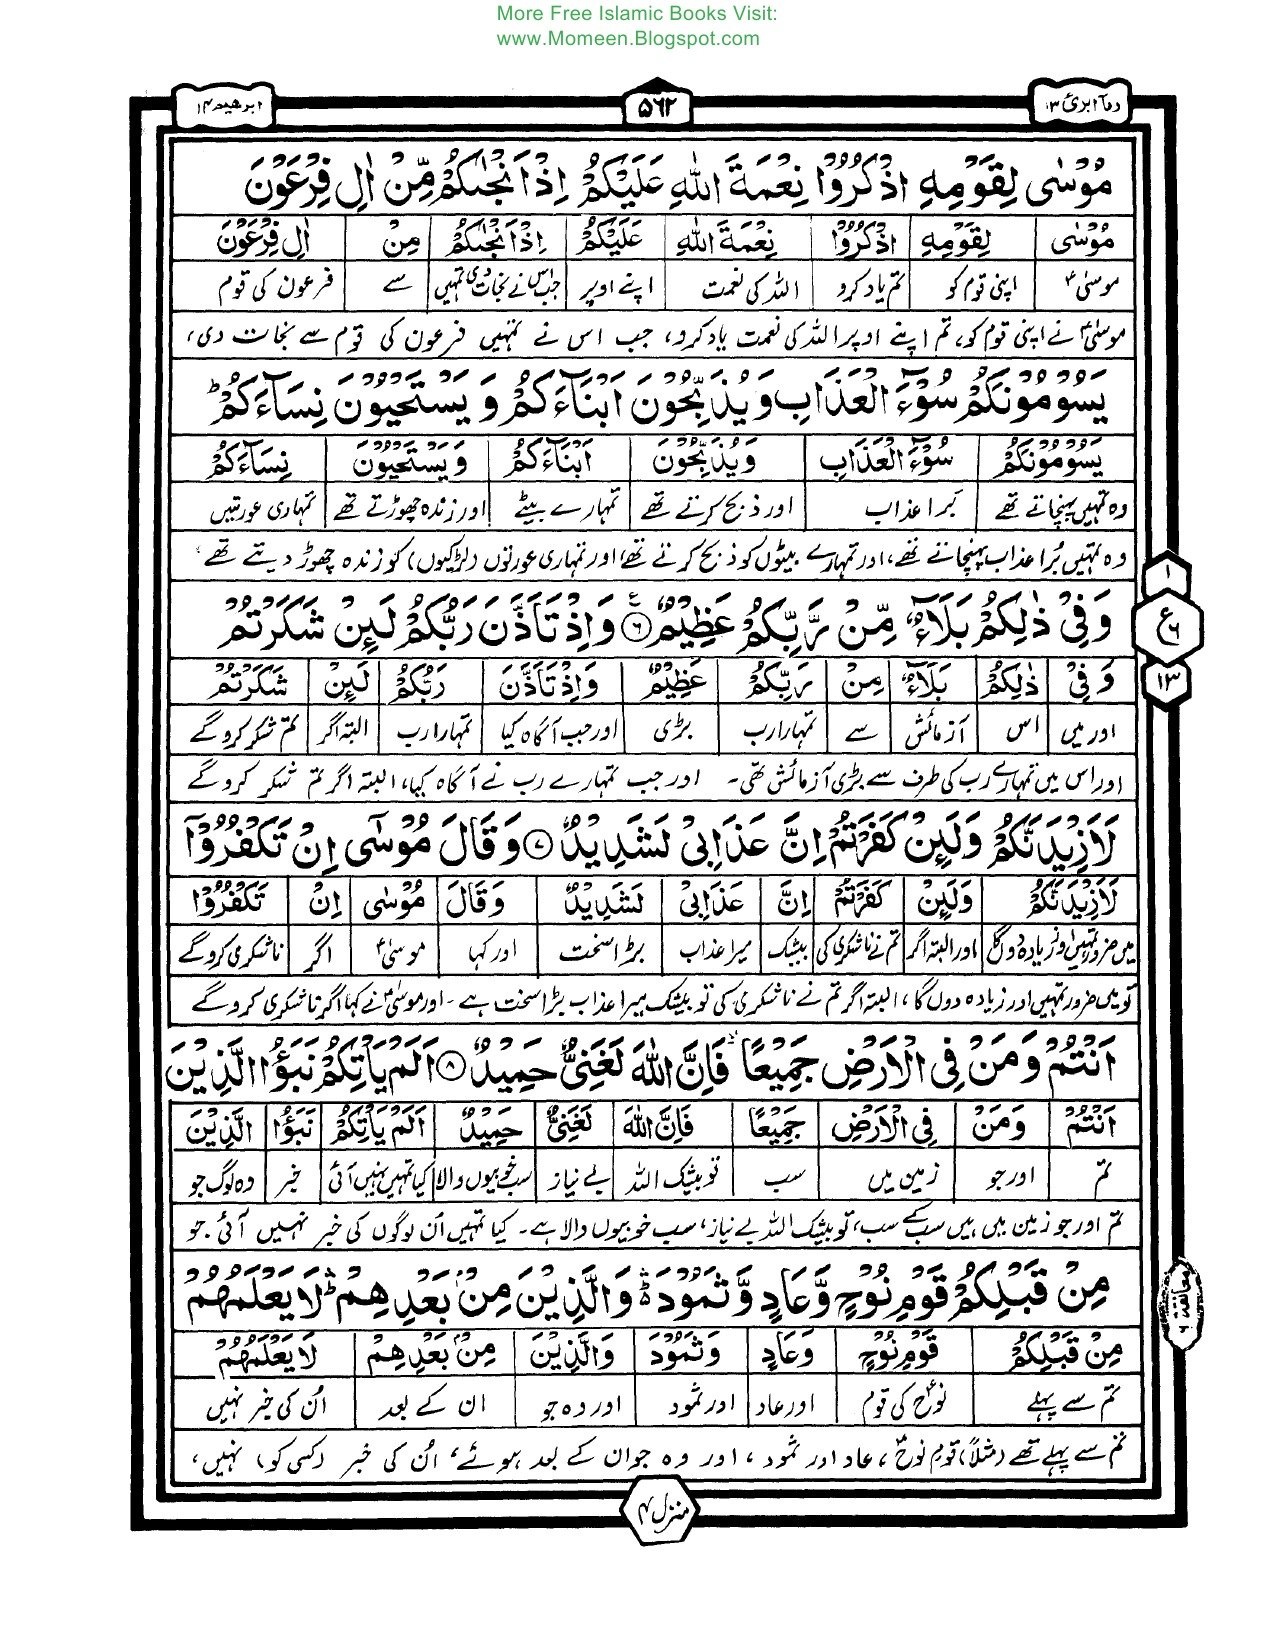 More Free Islamic Books Visit:
www.Momeen.Blogspot.com
ومآ ابرئ ۱۳
۵۶۲
ابرھیم ۱۴
مُوْسٰى لِقَوْمِهِ اذْكُرُوْا نِعْمَةَ اللّٰهِ عَلَيْكُمْ اِذْ اَنْجٰىكُمْ مِّنْ اٰلِ فِرْعَوْنَ
مُوْسٰى لِقَوْمِهِ اذْكُرُوْا نِعْمَةَ اللّٰهِ عَلَيْكُمْ اِذْ اَنْجٰىكُمْ مِنْ اٰلِ فِرْعَوْنَ
موسیٰؑ اپنی قوم کو تم یاد کرو اللہ کی نعمت اپنے اوپر جب اس نے نجات دی تمہیں سے فرعون کی قوم
موسیٰؑ نے اپنی قوم کو، تم اپنے اوپر اللہ کی نعمت یاد کرو، جب اس نے تمہیں فرعون کی قوم سے نجات دی،
يَسُوْمُوْنَكُمْ سُوْٓءَ الْعَذَابِ وَيُذَبِّحُوْنَ اَبْنَآءَكُمْ وَيَسْتَحْيُوْنَ نِسَآءَكُمْ ؕ
يَسُوْمُوْنَكُمْ سُوْٓءَ الْعَذَابِ وَيُذَبِّحُوْنَ اَبْنَآءَكُمْ وَيَسْتَحْيُوْنَ نِسَآءَكُمْ
وہ تمہیں پہنچاتے تھے برا عذاب اور ذبح کرتے تھے تمہارے بیٹے اور زندہ چھوڑتے تھے تمہاری عورتیں
وہ تمہیں بُرا عذاب پہنچاتے تھے، اور تمہارے بیٹوں کو ذبح کرتے تھے، اور تمہاری عورتوں (لڑکیوں) کو زندہ چھوڑ دیتے تھے،
۱
ع
۶
۱۳
وَفِيْ ذٰلِكُمْ بَلَآءٌ مِّنْ رَّبِّكُمْ عَظِيْمٌ ۶ وَاِذْ تَاَذَّنَ رَبُّكُمْ لَئِنْ شَكَرْتُمْ
وَفِيْ ذٰلِكُمْ بَلَآءٌ مِنْ رَّبِّكُمْ عَظِيْمٌ وَاِذْ تَاَذَّنَ رَبُّكُمْ لَئِنْ شَكَرْتُمْ
اور میں اس آزمائش سے تمہارا رب بڑی اور جب آگاہ کیا تمہارا رب البتہ اگر تم شکر کرو گے
اور اس میں تمہارے رب کی طرف سے بڑی آزمائش تھی۔ اور جب تمہارے رب نے آگاہ کیا، البتہ اگر تم شکر کرو گے
لَاَزِيْدَنَّكُمْ وَلَئِنْ كَفَرْتُمْ اِنَّ عَذَابِيْ لَشَدِيْدٌ ۷ وَقَالَ مُوْسٰٓى اِنْ تَكْفُرُوْٓا
لَاَزِيْدَنَّكُمْ وَلَئِنْ كَفَرْتُمْ اِنَّ عَذَابِيْ لَشَدِيْدٌ وَقَالَ مُوْسٰٓى اِنْ تَكْفُرُوْٓا
میں ضرور تمہیں اور زیادہ دوں گا اور البتہ اگر تم نے ناشکری کی بیشک میرا عذاب بڑا سخت اور کہا موسیٰؑ اگر ناشکری کرو گے
تو میں ضرور تمہیں اور زیادہ دوں گا، البتہ اگر تم نے ناشکری کی تو بیشک میرا عذاب بڑا سخت ہے۔ اور موسیٰؑ نے کہا اگر ناشکری کرو گے
اَنْتُمْ وَمَنْ فِي الْاَرْضِ جَمِيْعًا ۙ فَاِنَّ اللّٰهَ لَغَنِيٌّ حَمِيْدٌ ۸ اَلَمْ يَاْتِكُمْ نَبَؤُا الَّذِيْنَ
اَنْتُمْ وَمَنْ فِي الْاَرْضِ جَمِيْعًا فَاِنَّ اللّٰهَ لَغَنِيٌّ حَمِيْدٌ اَلَمْ يَاْتِكُمْ نَبَؤُا الَّذِيْنَ
تم اور جو زمین میں سب تو بیشک اللہ بے نیاز سب خوبیوں والا کیا تمہیں نہیں آئی خبر وہ لوگ جو
تم اور جو زمین میں ہیں سب کے سب، تو بیشک اللہ بے نیاز، سب خوبیوں والا ہے۔ کیا تمہیں اُن لوگوں کی خبر نہیں آئی جو
مِنْ قَبْلِكُمْ قَوْمِ نُوْحٍ وَّعَادٍ وَّثَمُوْدَ ۛؕ وَالَّذِيْنَ مِنْۢ بَعْدِهِمْ ۛؕ لَا يَعْلَمُهُمْ
مِنْ قَبْلِكُمْ قَوْمِ نُوْحٍ وَعَادٍ وَثَمُوْدَ وَالَّذِيْنَ مِنْۢ بَعْدِهِمْ لَا يَعْلَمُهُمْ
تم سے پہلے نوحؑ کی قوم اور عاد اور ثمود اور وہ جو ان کے بعد اُن کی خبر نہیں
تم سے پہلے تھے (مثلاً) قومِ نوحؑ، عاد اور ثمود، اور وہ جو ان کے بعد ہوئے، اُن کی خبر (کسی کو) نہیں،
معانقة ۶
منزل ۳